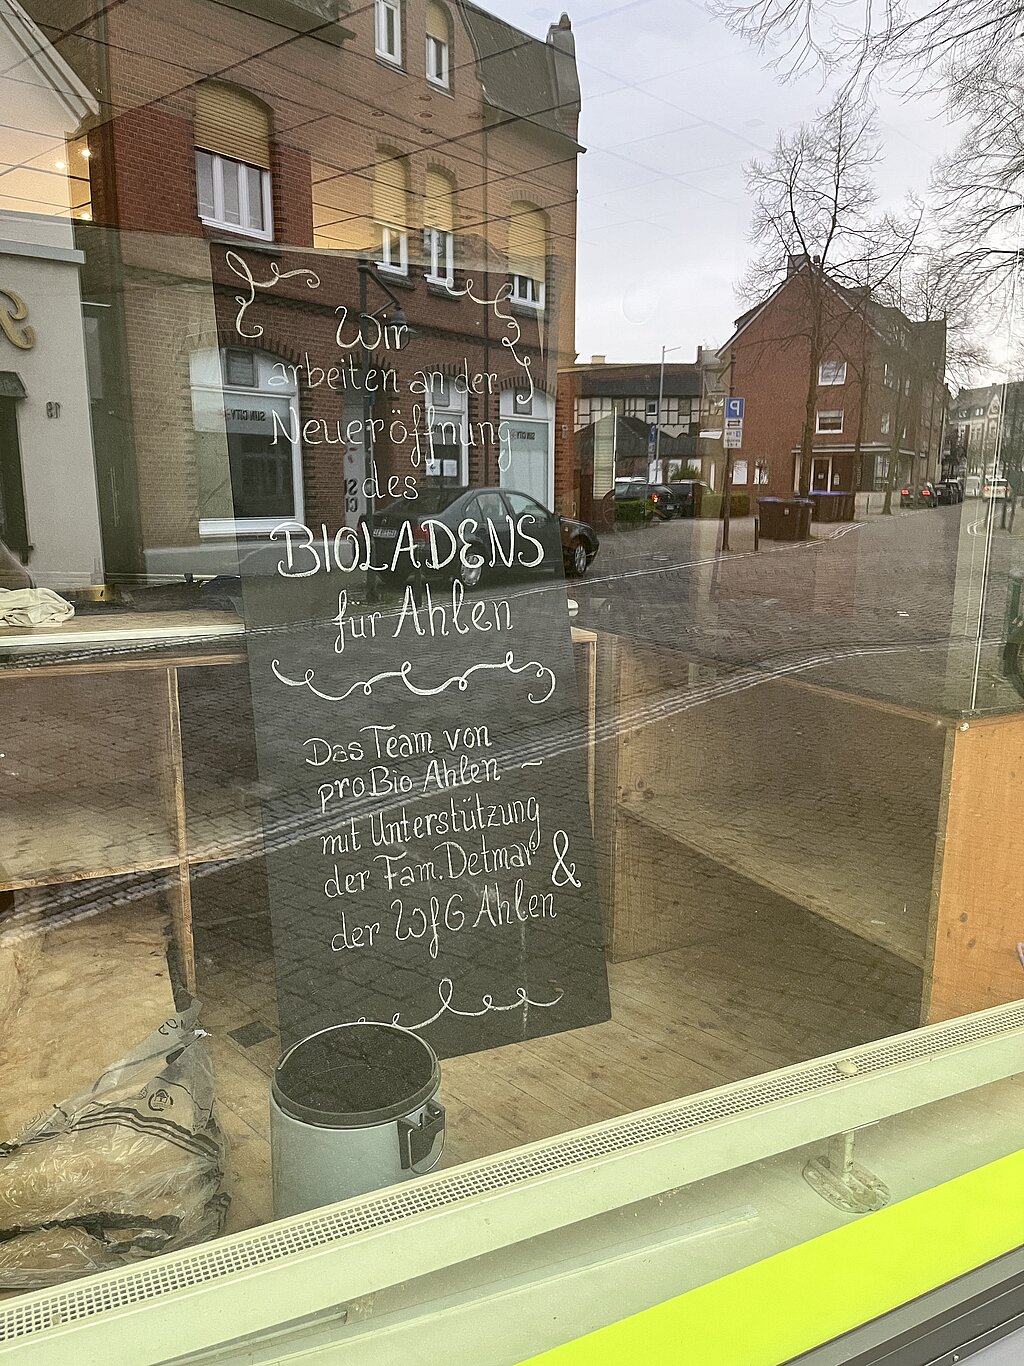 Wir
arbeiten an der
Neueröffnung
des
BIOLADENS
für Ahlen
Das Team von
proBio Ahlen –
mit Unterstützung
der Fam. Detmar &
der WfG Ahlen
SUN CITY
SUN CITY
P